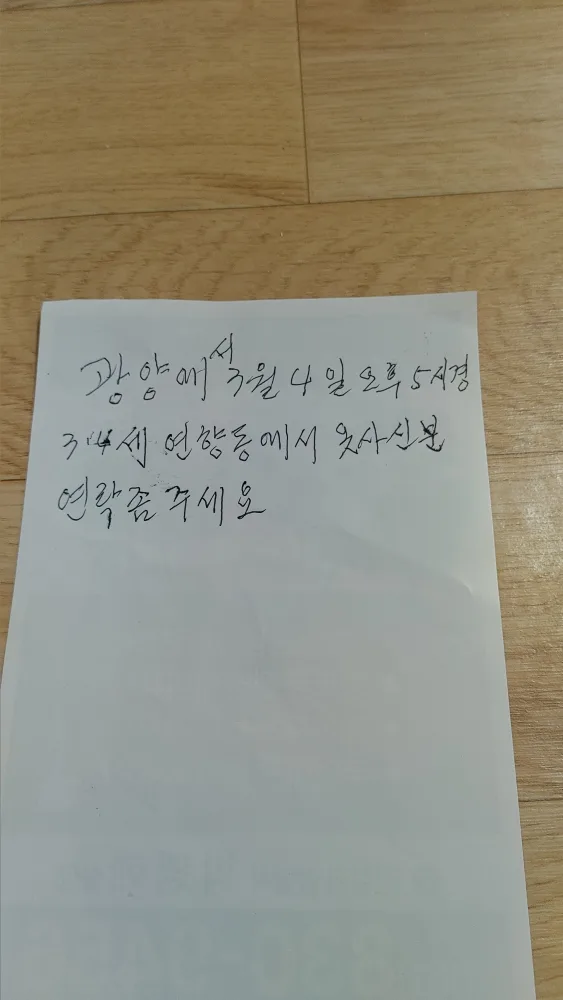 광양에서 3월 4일 오후 5시경
34세 연향동에서 옷사신분
연락좀 주세요